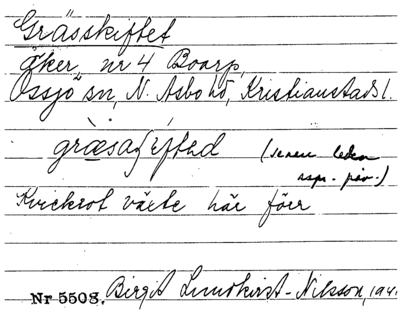 Grässkiftet
åker, nr 4 Boarp,
Össjö sn, N. Åsbo hd, Kristianstads l.
(senare leden
rspr. påv.)
Kvickrot växte här förr
Nr 5508. Birgit Lundkvist-Nilsson, 194